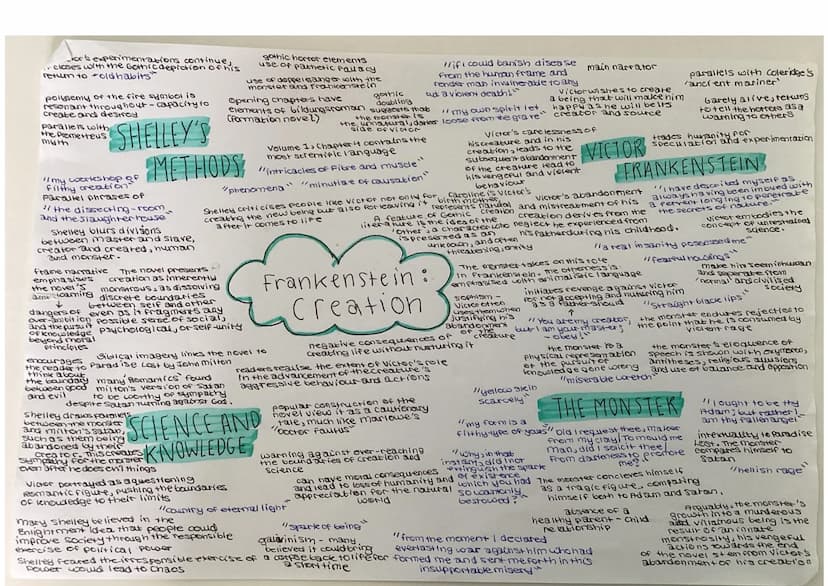 ...or's experimentations continue,
closes with the Gothic depiction of his
return to "old habits"
polysemy of the fire symbol is
resonant throughout - capacity to
create and destroy
parallels with
the Prometheus
myth
SHELLEY'S
METHODS
"my workshop of
filthy creation"
Parallel phrases of
"the dissecting-room
and the slaughter house"
Shelley blurs divisions
between master and slave,
creator and created, human
and monster.
gothic horror elements
use of pathetic fallacy
use of doppelganger with the
monster and Frankenstein
opening chapters have
elements of bildungsroman
(formation novel)
gothic
doubling
suggests that
the monster is
the unnatural, darker
side of Victor
Volume 1, Chapter 4 contains the
most scientific language
"intricacies of fibre and muscle"
"phenomena"
"minutiae of causation"
Shelley criticises people like Victor not only for
creating the new being but also for leaving it
after it comes to life
"if I could banish disease
from the human frame and
render man invulnerable to any
but a violent death"
"my own spirit let
loose from the grave"
main narrator
parallels with Coleridge's
'ancient mariner'
Victor wishes to create
a being that will make him
happy as he will be its
creator and source
Barely alive, returns
to tell the horrors as a
warning to others
Victor's carelessness of
his creature and in his
creation, leads to the
subsequent abandonment
of the creature lead to
his vengeful and violent
behaviour
VICTOR
FRANKENSTEIN
trades humanity for
speculation and experimentation
"I have described myself as
always having been imbued with
a fervent longing to penetrate
the secrets of nature"
Caroline is Victor's
birth mother,
represents natural
creation
Victor's abandonment
and mistreatment of his
creation derives from the
neglect he experienced from
his father during his childhood.
Victor embodies the
concept of unrestrained
science.
A feature of Gothic
literature is the idea of the
'other', a character who
is presented as an
unknown, and often
threatening, entity
"a real insanity possessed me"
"fearful housing"
The monster takes on this role
in Frankenstein. The otherness is
emphasised with animalistic language
make him seem inhuman
and separate from
'normal' and civilised
society
"straight black lips"
initiates revenge against Victor
for not accepting and nurturing him
as a father should
"You are my creator,
but I am your master;
- obey!"
the monster endures rejection to
the point that he is consumed by
violent rage
Frankenstein:
Creation
frame narrative
emphasises
the novel's
warning
dangers of
over-ambition
and the pursuit
of knowledge
beyond moral
principles
The novel presents
creation as inherently
monstrous, as dissolving
discrete boundaries
between self and other
even as it fragments any
possible sense of social,
psychological, or self-unity
encourages
the reader to
think about
the boundary
between good
and evil
Biblical imagery links the novel to
Paradise Lost by John Milton
many 'Romantics' found
Milton's version of Satan
to be worthy of sympathy
despite Satan turning against God.
negative consequences of
creating life without nurturing it
readers realise the extent of Victor's role
in the advancement of the creature's
aggressive behaviour and actions
Shelley draws parallels
between the monster
and Milton's Satan,
such as them being
abandoned by their
creator. This creates
sympathy for the monster
even after he does evil things
SCIENCE AND
KNOWLEDGE
popular construction of the
novel view it as a cautionary
tale, much like Marlowe's
"Doctor Faustus"
Victor portrayed as a questioning
Romantic figure, pushing the boundaries
of knowledge to their limits
"country of eternal light"
warning against over-reaching
the boundaries of creation and
science
can have moral consequences
and lead to loss of humanity and
appreciation for the natural
world
Mary Shelley believed in the
Enlightenment idea that people could
improve society through the responsible
exercise of political power
Shelley feared the irresponsible exercise of
power would lead to chaos
"spark of being"
galvanism - many
believed it could bring
a corpse back to life for
a short time
"from the moment I declared
everlasting war against him who had
formed me and sent me forth in this
insupportable misery"
the monster is a
physical representation
of the pursuit of
knowledge gone wrong
"miserable wretch"
the monster's eloquence of
speech is shown with oxymoron,
antitheses, religious allusions
and use of balance and opposition
"yellow skin
scarcely"
THE MONSTER
"I ought to be thy
Adam; but rather I
am thy fallen angel"
"my form is a
filthy type of yours"
"Did I request thee, Maker
from my clay To mould me
man, did I solicit thee
From darkness to promote
me?"
intertextuality to Paradise
Lost, the monster
compares himself to
Satan
"hellish rage"
"Why, in that
instant, did I not
extinguish the spark
of existence
which you had
so wantonly
bestowed?"
The monster conceives himself
as a tragic figure, comparing
himself both to Adam and Satan.
absence of a
healthy parent-child
relationship
Arguably, the monster's
growth into a murderous
and villainous being is the
result of an innate
monstrosity, his vengeful
actions towards the end
of the novel stem from Victor's
abandonment of his creation